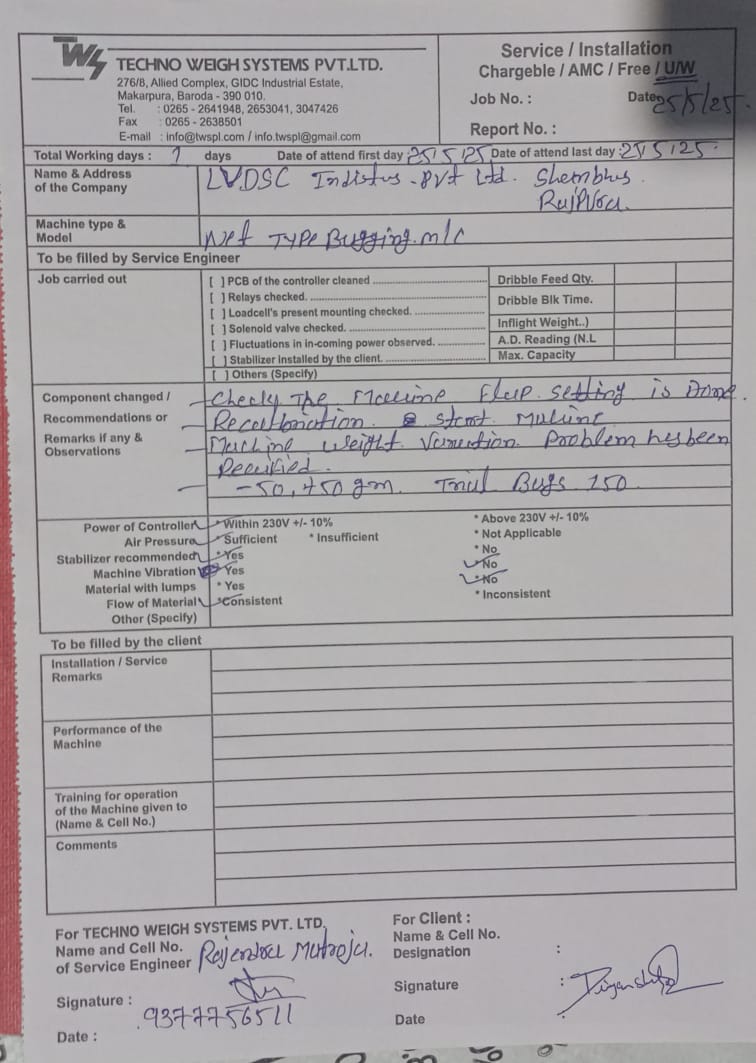 TWS
TECHNO WEIGH SYSTEMS PVT.LTD.
276/8, Allied Complex, GIDC Industrial Estate,
Makarpura, Baroda - 390 010.
Tel. : 0265 - 2641948, 2653041, 3047426
Fax : 0265 - 2638501
E-mail : info@twspl.com / info.twspl@gmail.com
Service / Installation
Chargeble / AMC / Free / U/W
Job No. : Date 25/5/25.
Report No. :
Total Working days : 1 days Date of attend first day 25/5/25 Date of attend last day 25/5/25.
Name & Address LVDSC Indistus. Pvt Ltd.
of the Company
Machine type & Wet TYPE Bugging. m/c
Model
To be filled by Service Engineer
Job carried out
[ ] PCB of the controller cleaned
[ ] Relays checked.
[ ] Loadcell's present mounting checked.
[ ] Solenoid valve checked.
[ ] Fluctuations in in-coming power observed.
[ ] Stabilizer Installed by the client.
[ ] Others (Specify)
Dribble Feed Qty.
Dribble Blk Time.
Inflight Weight..)
A.D. Reading (N.L
Max. Capacity
Component changed /
Recommendations or
Remarks if any &
Observations
The Flap setting is Done.
start
weight Problem hes been
- 50,450 gm. Trial Bugs 150
Power of Controller * Within 230V +/- 10% * Above 230V +/- 10%
Air Pressure * Sufficient * Insufficient * Not Applicable
Stabilizer recommended * Yes * No
Machine Vibration * Yes * No
Material with lumps * Yes * No
Flow of Material * Consistent * Inconsistent
Other (Specify)
To be filled by the client
Installation / Service
Remarks
Performance of the
Machine
Training for operation
of the Machine given to
(Name & Cell No.)
Comments
For TECHNO WEIGH SYSTEMS PVT. LTD.
Name and Cell No.
of Service Engineer
Signature :
9377756511
Date :
For Client :
Name & Cell No. :
Designation
Signature :
Date :